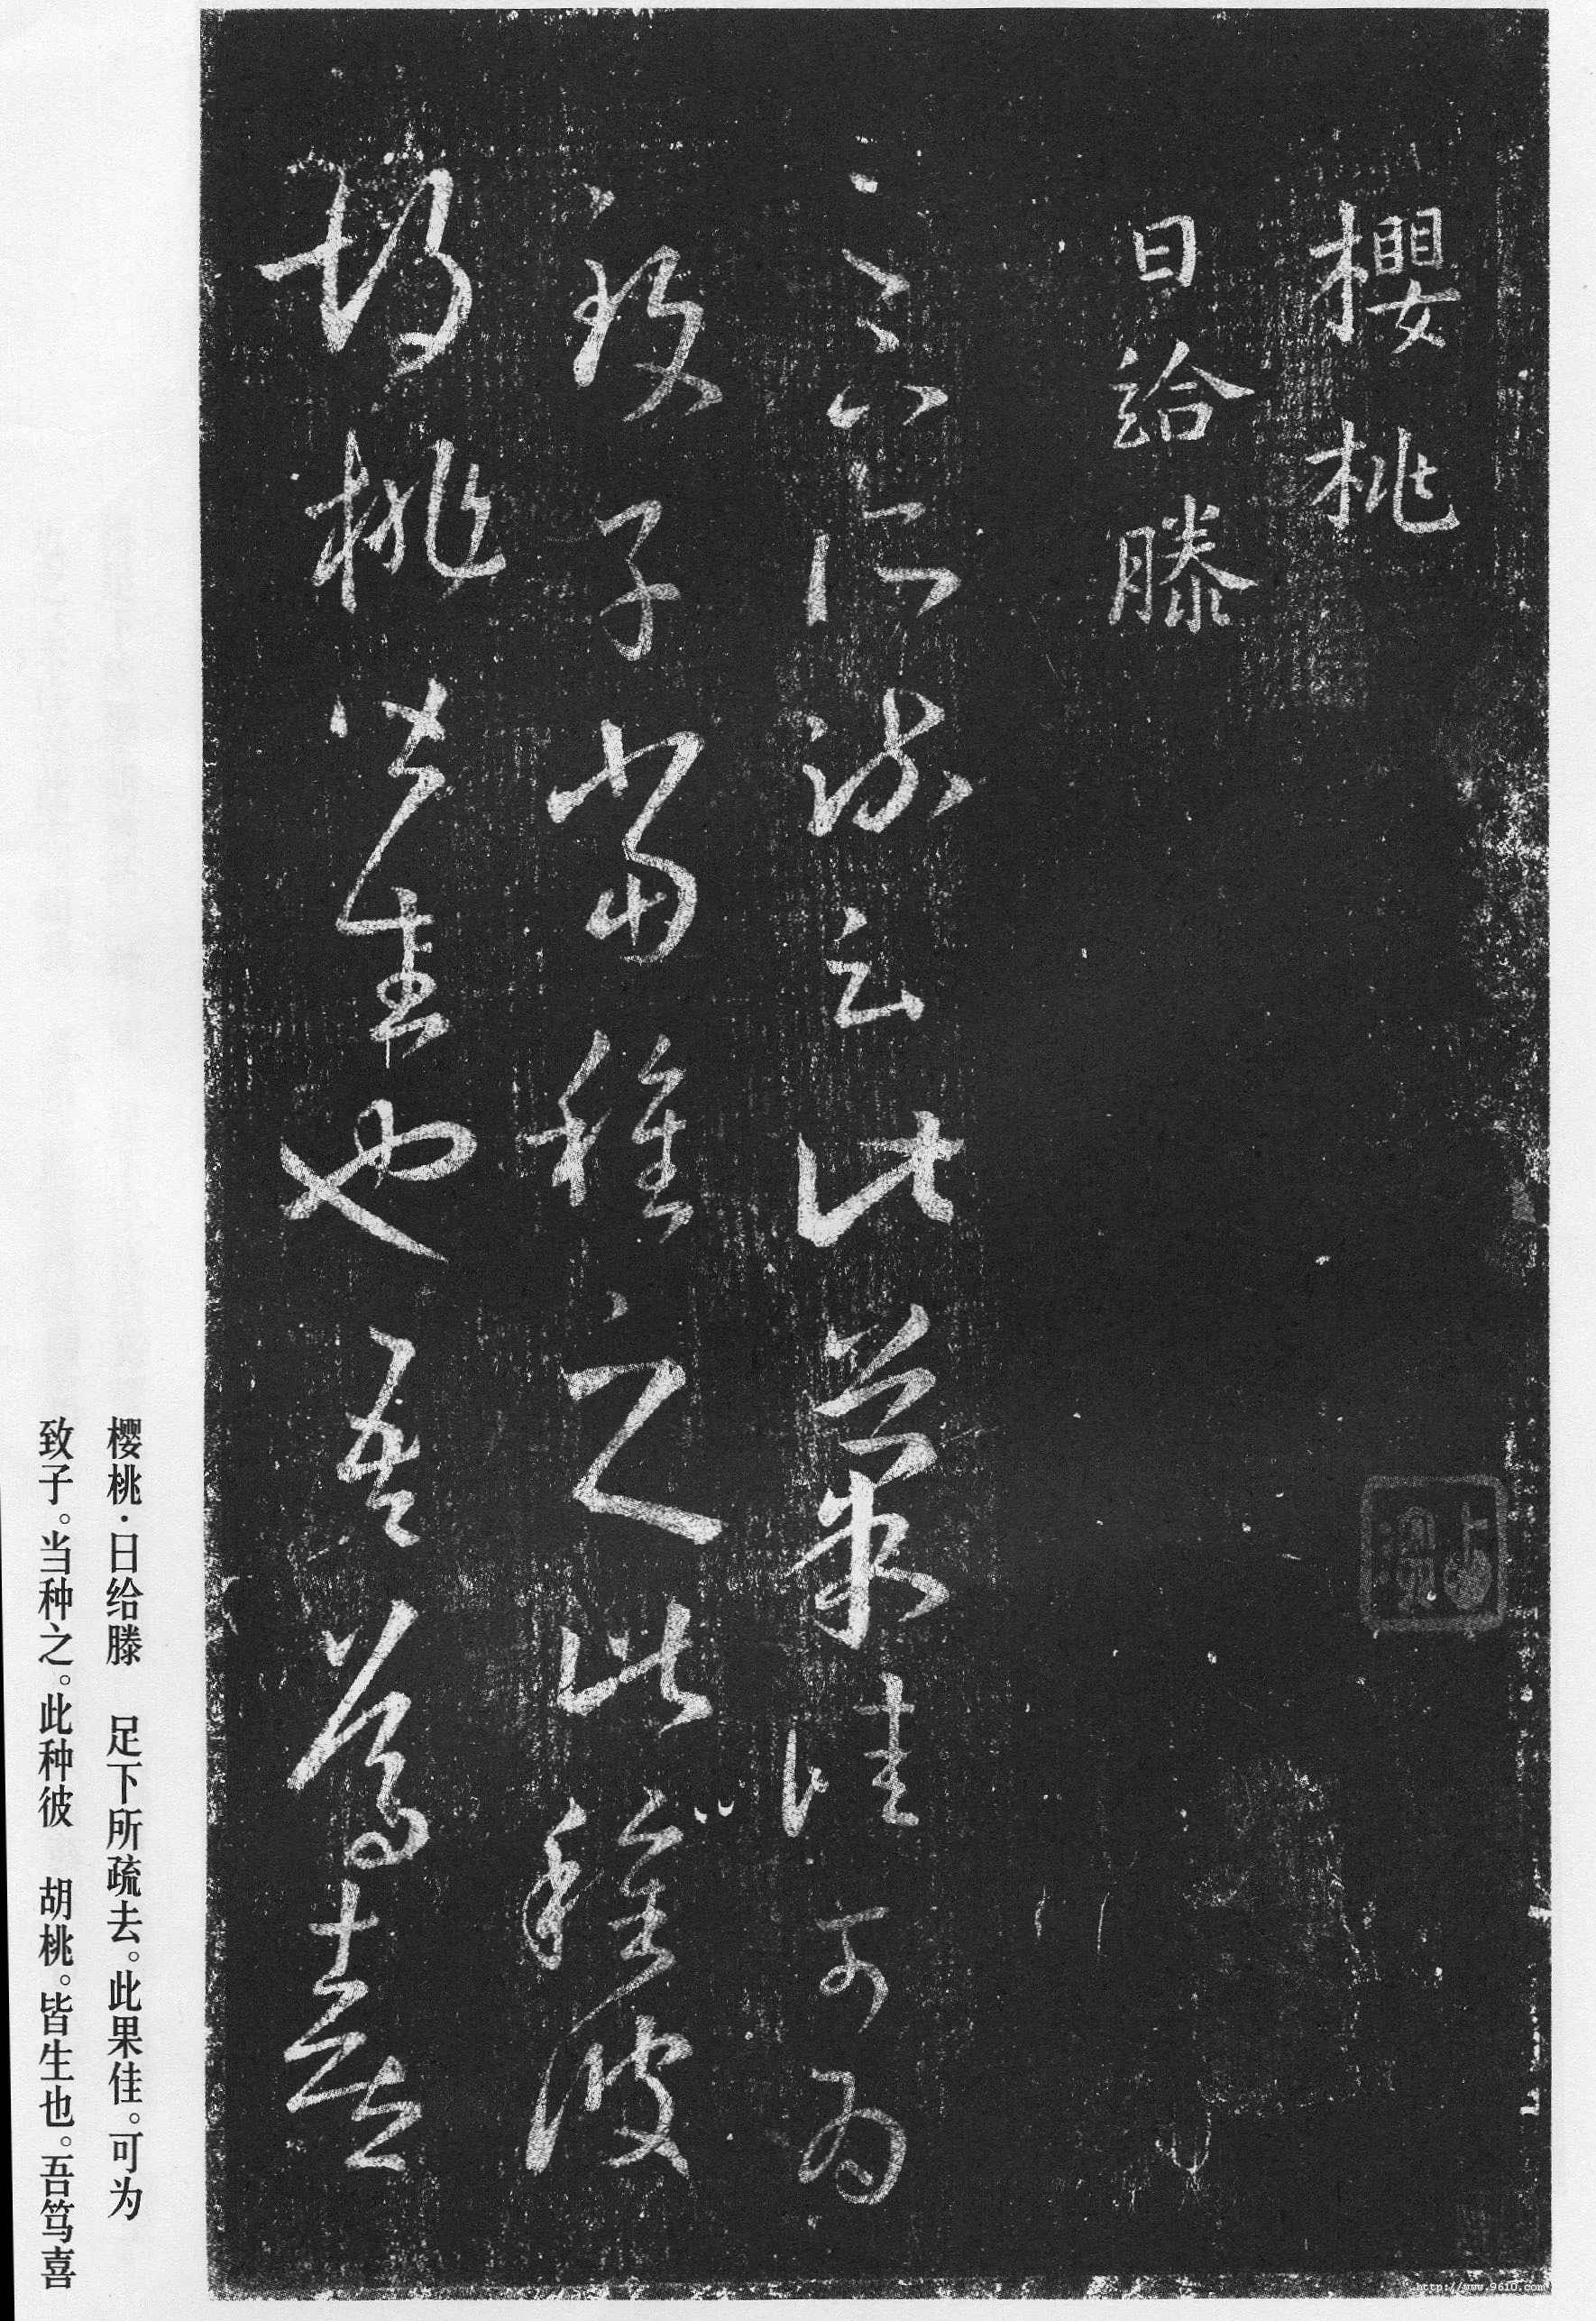 櫻桃
日給滕
足下所疏云此菓佳可为
致子当種之此種彼
胡桃皆生也吾篤喜
樱桃·日给滕 足下所疏去。此果佳。可为
致子。当种之。此种彼 胡桃。皆生也。吾笃喜
http://www.9610.com